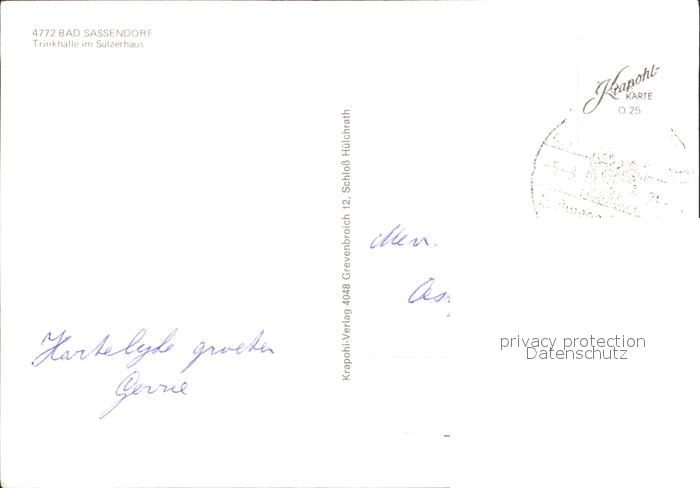 4772 BAD SASSENDORF
Trinkhalle im Sülzerhaus
Krapohl-
KARTE
O 25
Krapohl-Verlag 4048 Grevenbroich 12, Schloß Hülchrath
Mevr.
Hartelyke groeten
privacy protection
Datenschutz